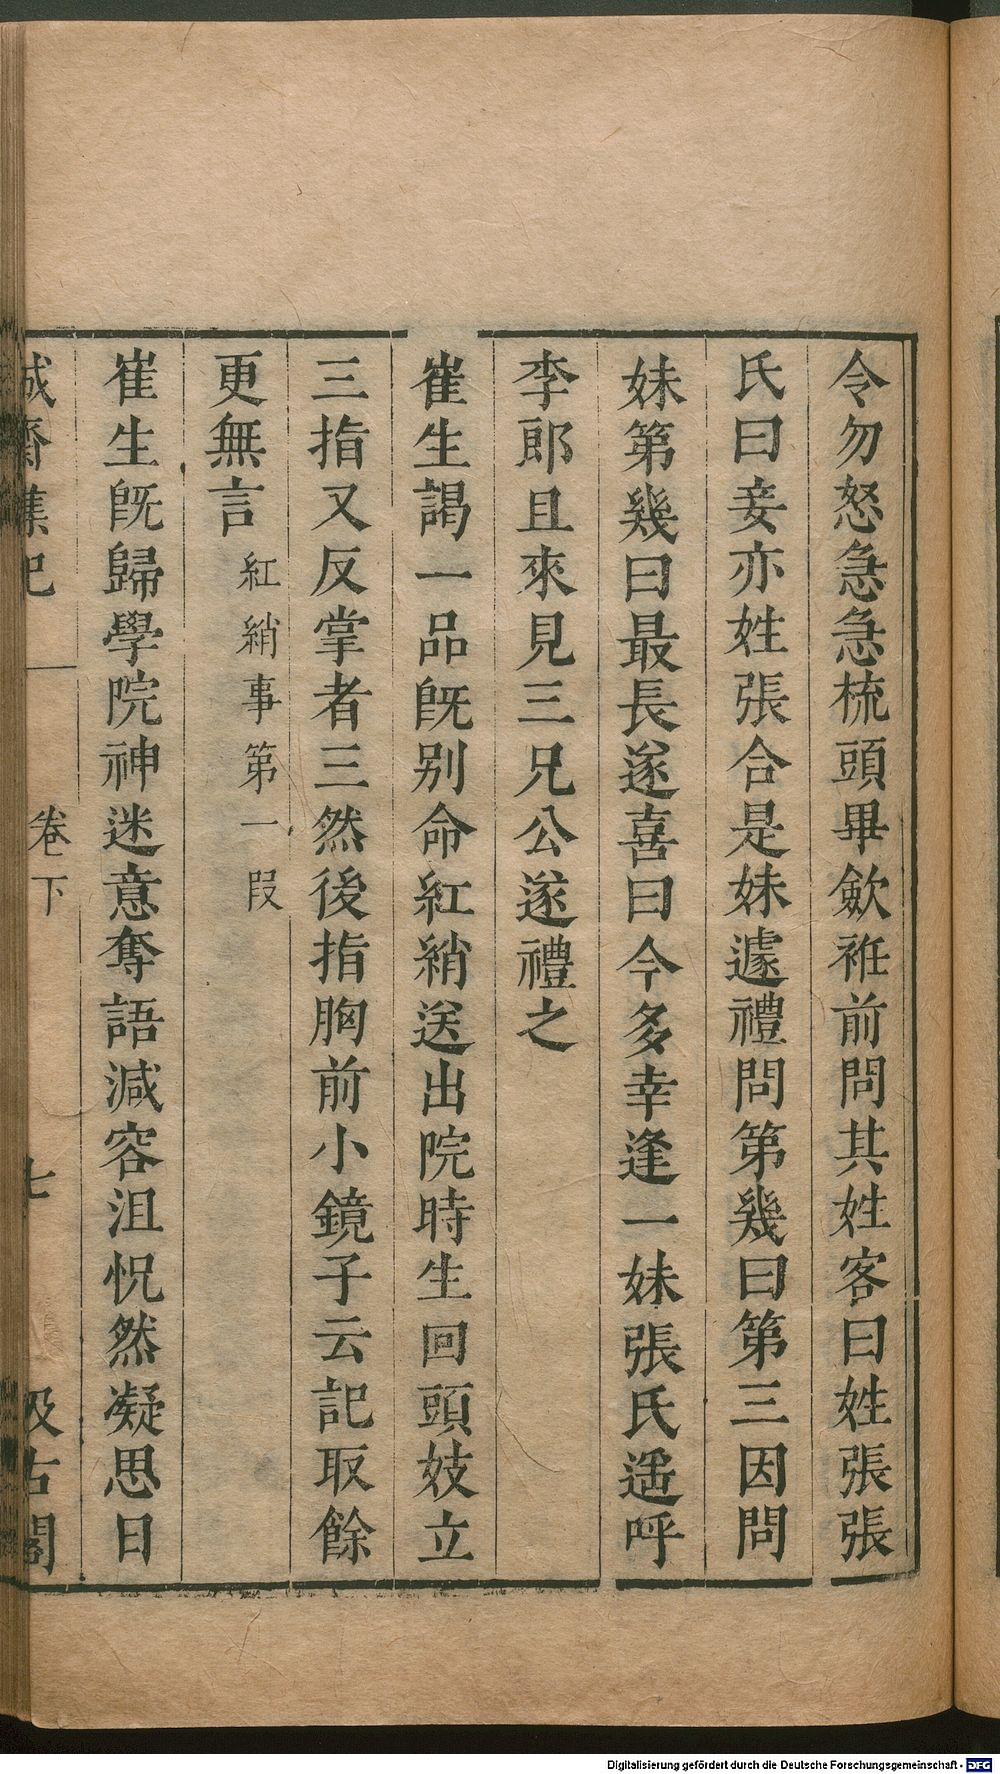 令勿怒急急梳頭畢歛袵前問其姓客曰姓張張
氏曰妾亦姓張合是妹遽禮問第幾曰第三因問
妹第幾曰最長遂喜曰今多幸逢一妹張氏遥呼
李郎且來見三兄公遂禮之
崔生謁一品旣别命紅綃送出院時生回頭妓立
三指又反掌者三然後指胸前小鏡子云記取餘
更無言 紅綃事第一段
崔生旣歸學院神迷意奪語減容沮怳然凝思日
誠齋雜記 卷下 七 汲古閣
Digitalisierung gefördert durch die Deutsche Forschungsgemeinschaft - DFG